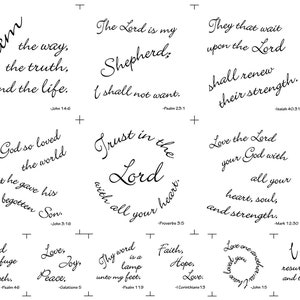 am
the way,
the truth,
and the life.
-John 14:6
The Lord is my
Shepherd;
I shall not want.
-Psalm 23:1
They that wait
upon the Lord
shall renew
their strength.
-Isaiah 40:31
God so loved
the world
he gave his
begotten Son.
-John 3:16
Trust in the
Lord
with all your heart.
-Proverbs 3:5
Love the Lord
your God with
all your
heart, soul,
and strength.
-Mark 12:30
is
refuge
strength.
-Psalm 46
Love,
Joy,
Peace,
-Galatians 5
Thy word
is a
lamp
unto my feet.
-Psalm 119
Faith,
Hope,
Love.
-I Corinthians 13
Love one another
loved you
-John 15
I
resu
and